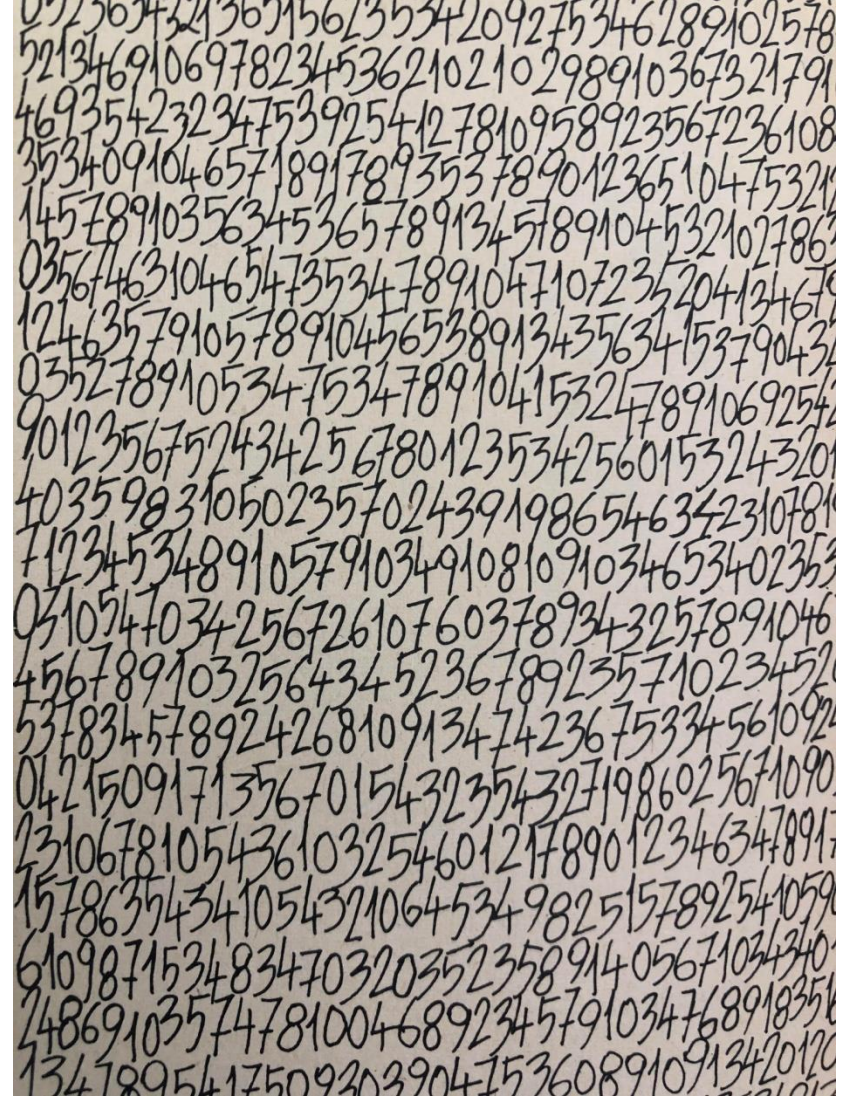 05256343213651562353420927534628910257 8
5213469106978234536210210298910367321791
46935423234753925412781095892356723610 8
3534091046571891789353789012365104753212
14578910356345365789134578910453210278 6
0356746310465473534789104710723520413467
124635791057891045653891343563415379043
03527891053475347891041532478910692542
9012356752434256780123534256015324320
40359831050235702439198654634231078 1
71234534891057910349108109103465340235
031054703425672610760378934325789104 6
4567891032564345236789235710234 52
5378345789242681091347423675334561092
04215091713567015432354327198602567109 0
231067810543610325460121789012346347891
157863543410543210645349825157892541059
610987153483470320352358914056710343 40
248691035747810046892345791034768918351
134789541750930390475360891091342012